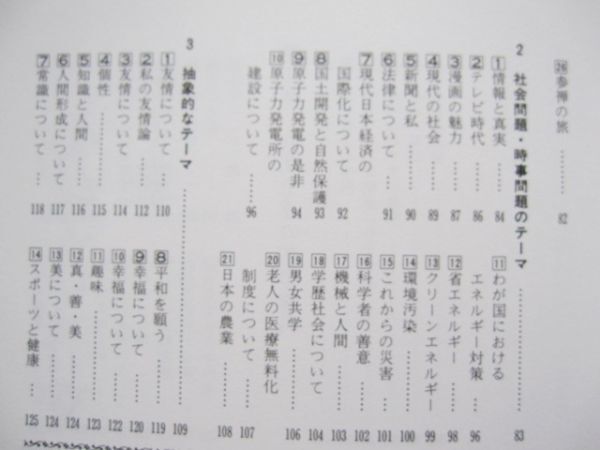 26 参禅の旅 ………… 82
2 社会問題・時事問題のテーマ ………… 83
1 情報と真実 … 84
2 テレビ時代 … 86
3 漫画の魅力 … 87
4 現代の社会 … 89
5 新聞と私 … 90
6 法律について … 91
7 現代日本経済の
国際化について 92
8 国土開発と自然保護 93
9 原子力発電の是非 94
10 原子力発電所の
建設について … 96
11 わが国における
エネルギー対策 … 96
12 省エネルギー … 98
13 クリーンエネルギー 99
14 環境汚染 … 100
15 これからの災害 … 101
16 科学者の善意 … 102
17 機械と人間 … 103
18 学歴社会について 104
19 男女共学 … 106
20 老人の医療無料化
制度について … 107
21 日本の農業 … 108
3 抽象的なテーマ ………… 109
1 友情について … 110
2 私の友情論 … 112
3 友情について … 114
4 個性 … 115
5 知識と人間 … 116
6 人間形成について 117
7 常識について … 118
8 平和を願う … 119
9 幸福について … 120
10 幸福について … 122
11 趣味 … 123
12 真・善・美 … 124
13 美について … 124
14 スポーツと健康 … 125